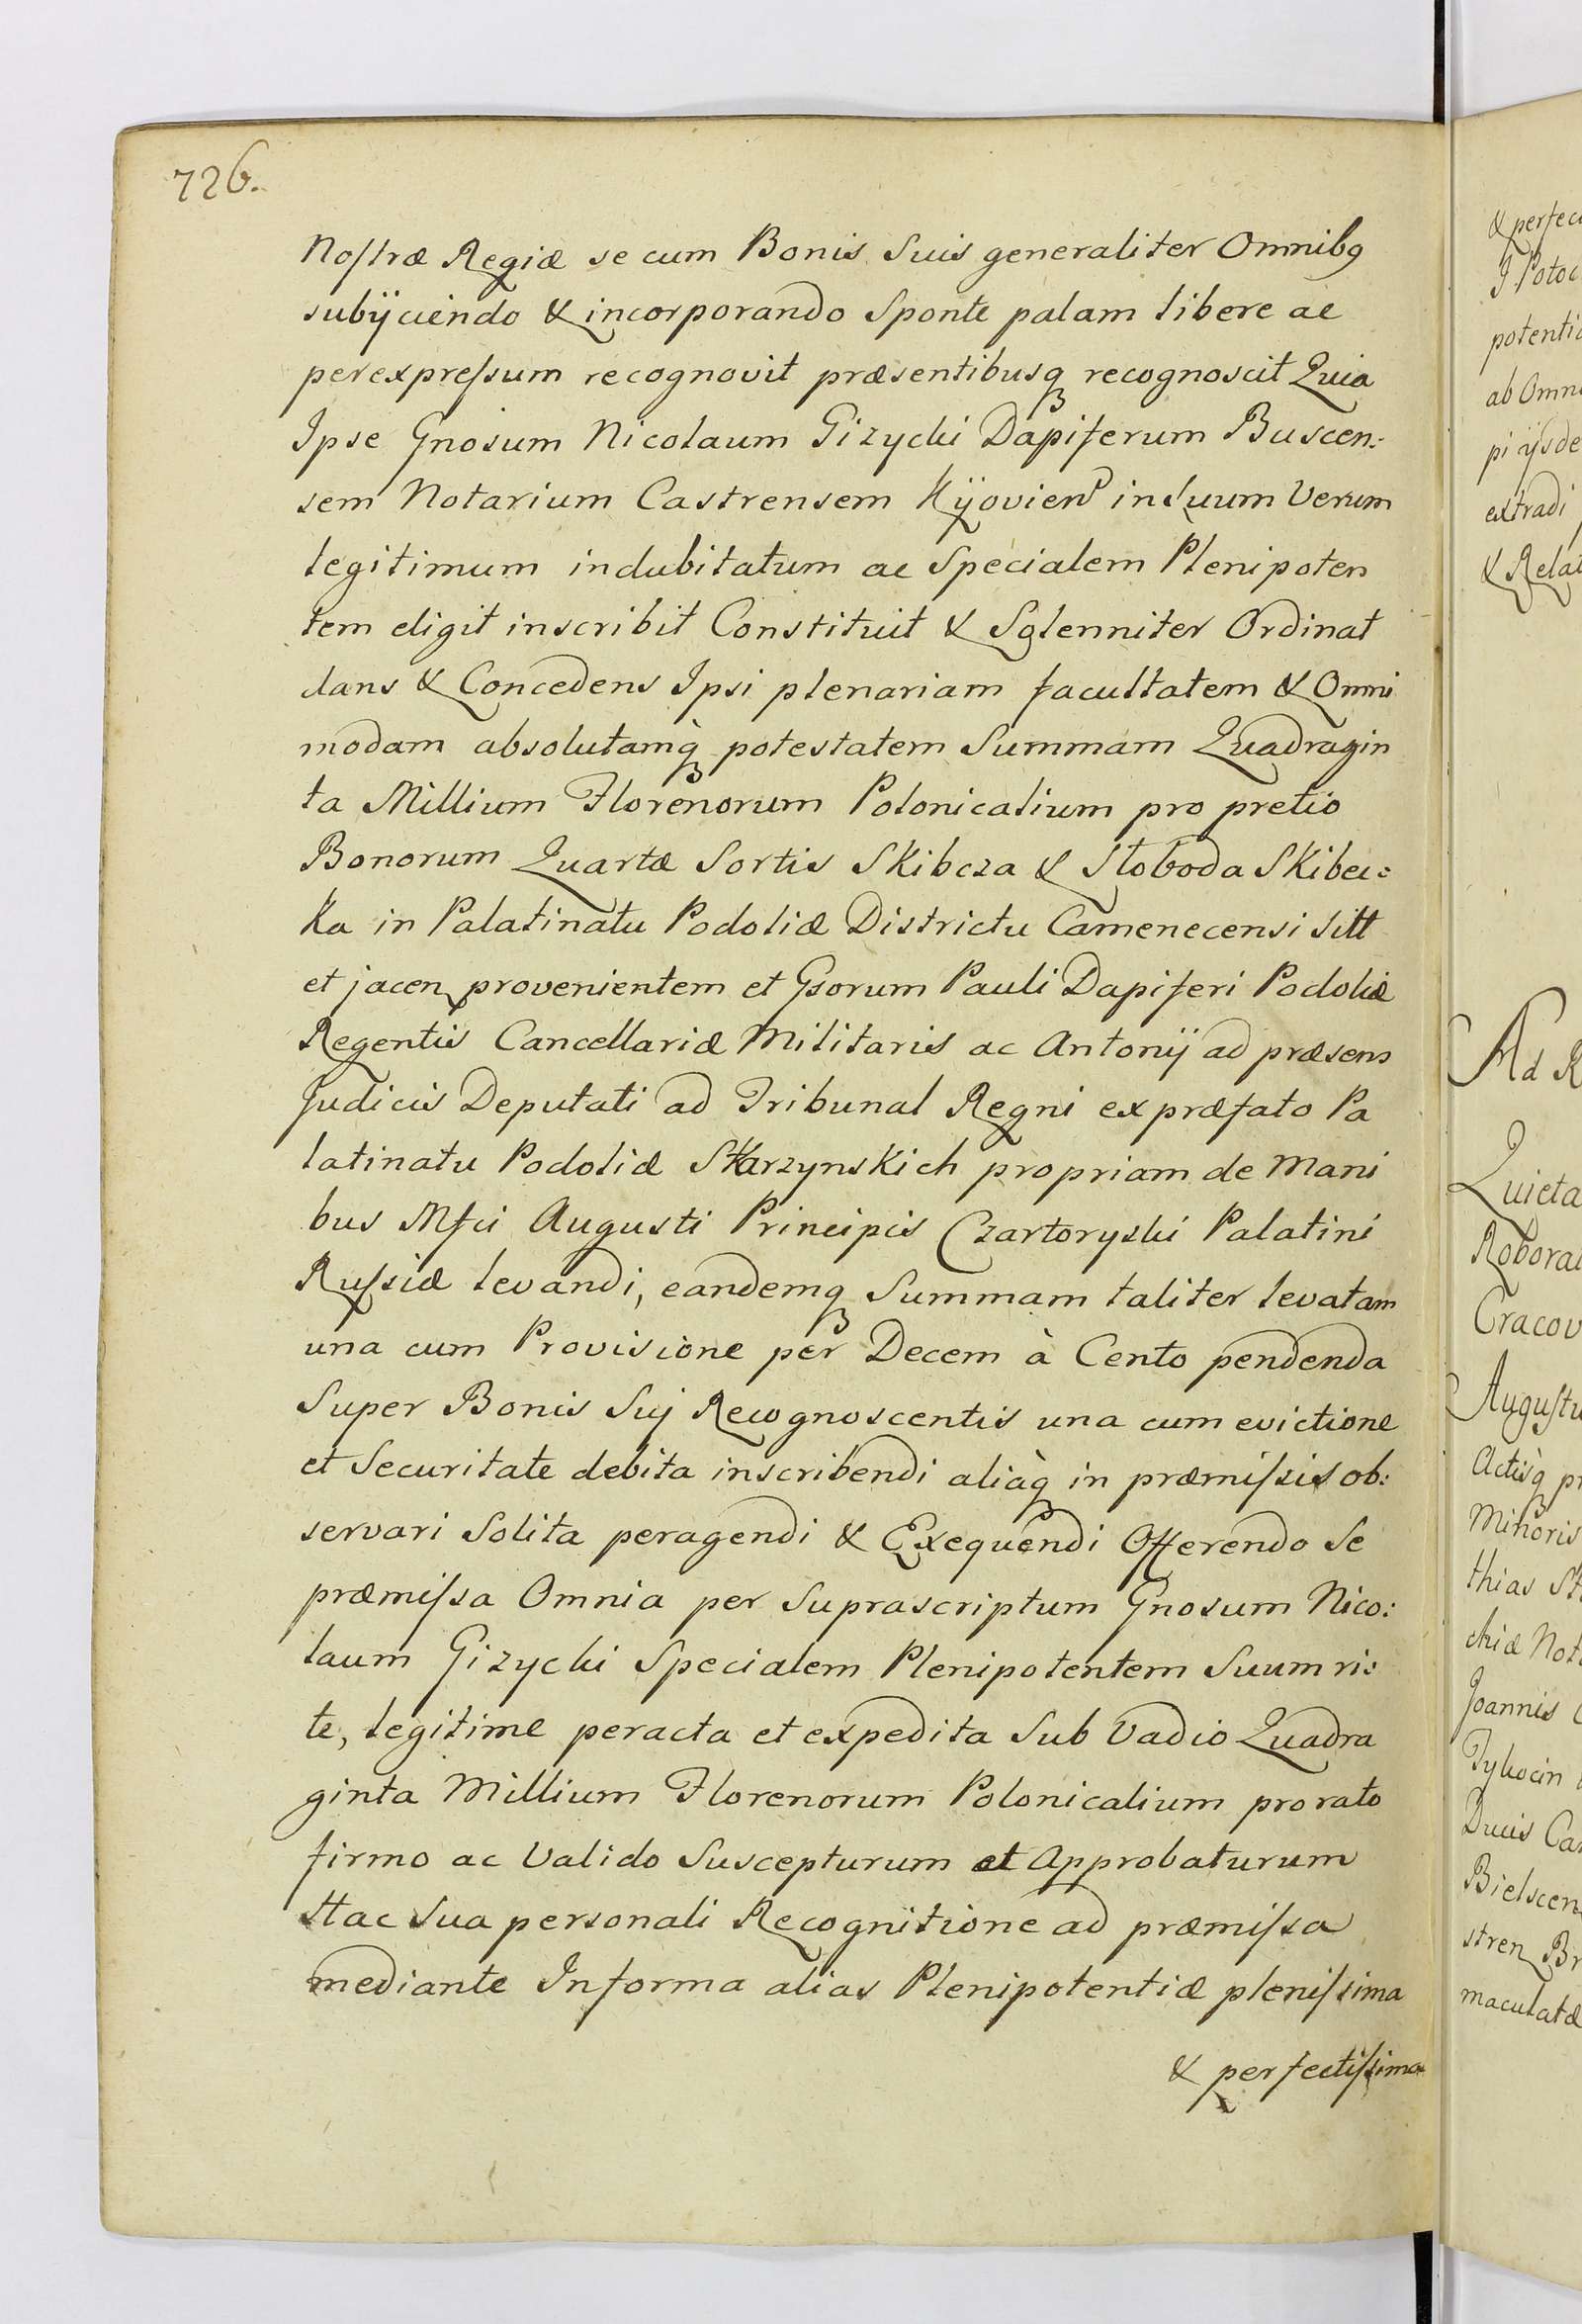 726.
Nostræ Regiæ se cum Bonis Suis generaliter Omnibꝯ
subÿciendo & incorporando Sponte palam libere ac
perexpressum recognovit præsentibusq recognoscit Quia
Ipse Gnosum Nicolaum Gizycki Dapiferum Buscen:
sem Notarium Castrensem Kÿovien in Suum Verum
legitimum indubitatum ac Specialem Plenipoten
tem eligit inscribit Constituit & Solenniter Ordinat
dans & Concedens Ipsi plenariam facultatem & Omni
modam absolutamq̀ potestatem Summam Quadragin
ta Millium Florenorum Polonicalium pro pretio
Bonorum Quartæ Sortis Skibcza & Słoboda Skibec:
ka in Palatinatu Podoliæ Districtu Camenecensi Sitt
et jacen provenientem et Gsorum Pauli Dapiferi Podoliæ
Regentis Cancellariæ Militaris ac Antonij ad præsens
Judicis Deputati ad Tribunal Regni ex præfato Pa
latinatu Podoliæ Starzynskich propriam de Mani
bus Mfci Augusti Principis Czartoryski Palatini
Russiæ levandi, eandemq Summam taliter levatam
una cum Provisione per Decem à Cento pendenda
Super Bonis Suj Recognoscentis una cum evictione
et Securitate debita inscribendi aliàq in præmissis ob:
servari Solita peragendi & Exequendi Offerendo Se
præmissa Omnia per Suprascriptum Gnosum Nico:
laum Gizycki Specialem Plenipotentem Suum ri:
te, legitime peracta et expedita Sub Vadio Quadra
ginta Millium Florenorum Polonicalium pro rato
firmo ac Valido Suscepturum et Approbaturum
Hac Sua personali Recognitione ad præmissa
mediante In forma alias Plenipotentiæ plenissima
& perfectissima
& perfec
J Potoc
potentia
ab Omn
pi ijsde
extradi
& Rela
Ad R
Quieta
Robora
Cracov
Augustu
Actisq̀ p
Minoris
thias St
chiæ Not
Joannis
Tykocin
Ducis Ca
Bielscen
stren Br
maculatæ